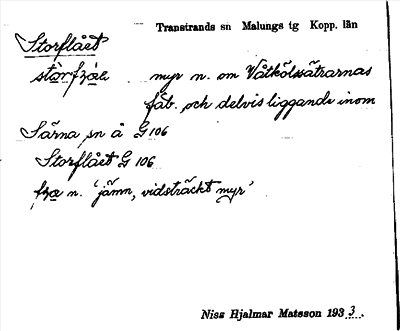 Transtrands sn Malungs tg Kopp. län
Storflået
myr n. om Våtkölssätrarnas
fäb. och delvis liggande inom
Särna sn å G 106
Storflået G 106
n. 'jämn, vidsträckt myr'
Niss Hjalmar Matsson 1933.